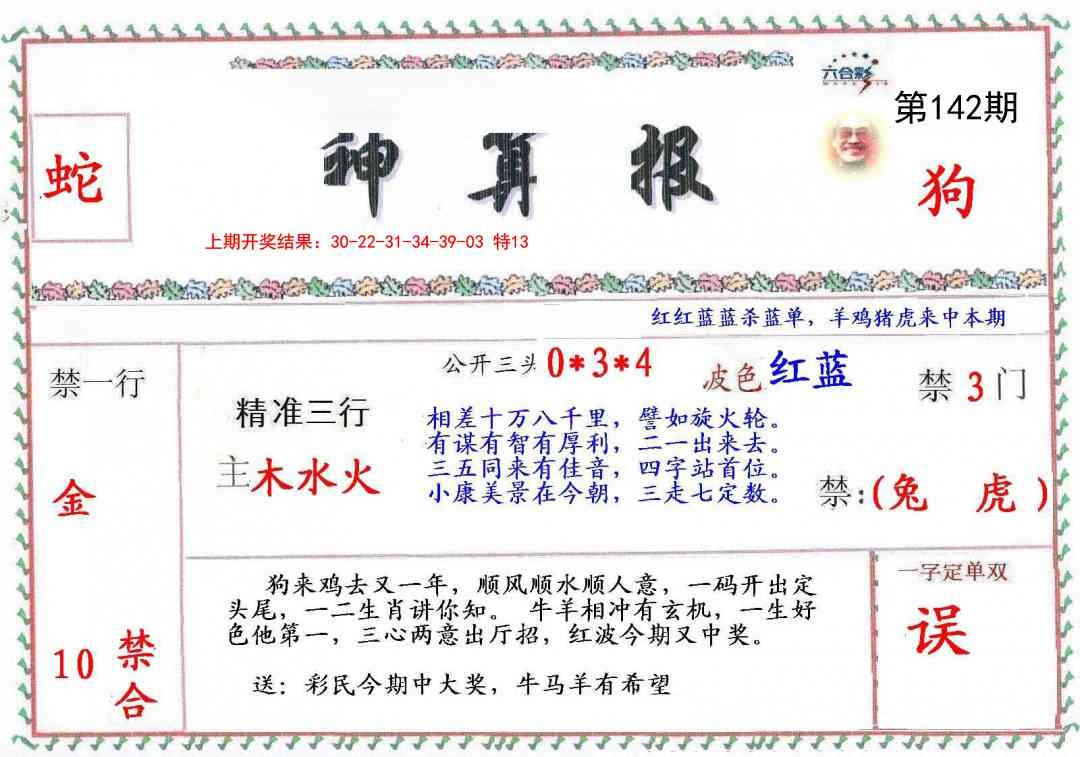 六合彩
第142期
蛇
神算报
狗
上期开奖结果：30-22-31-34-39-03 特13
红红蓝蓝杀蓝单，羊鸡猪虎来中本期
禁一行
公开三头 0*3*4
波色 红蓝
禁 3 门
精准三行
主木水火
相差十万八千里，譬如旋火轮。
有谋有智有厚利，二一出来去。
三五同来有佳音，四字站首位。
小康美景在今朝，三走七定数。
禁:(兔 虎)
金
狗来鸡去又一年，顺风顺水顺人意，一码开出定
头尾，一二生肖讲你知。 牛羊相冲有玄机，一生好
色他第一，三心两意出厅招，红波今期又中奖。
送：彩民今期中大奖，牛马羊有希望
一字定单双
误
10 禁合